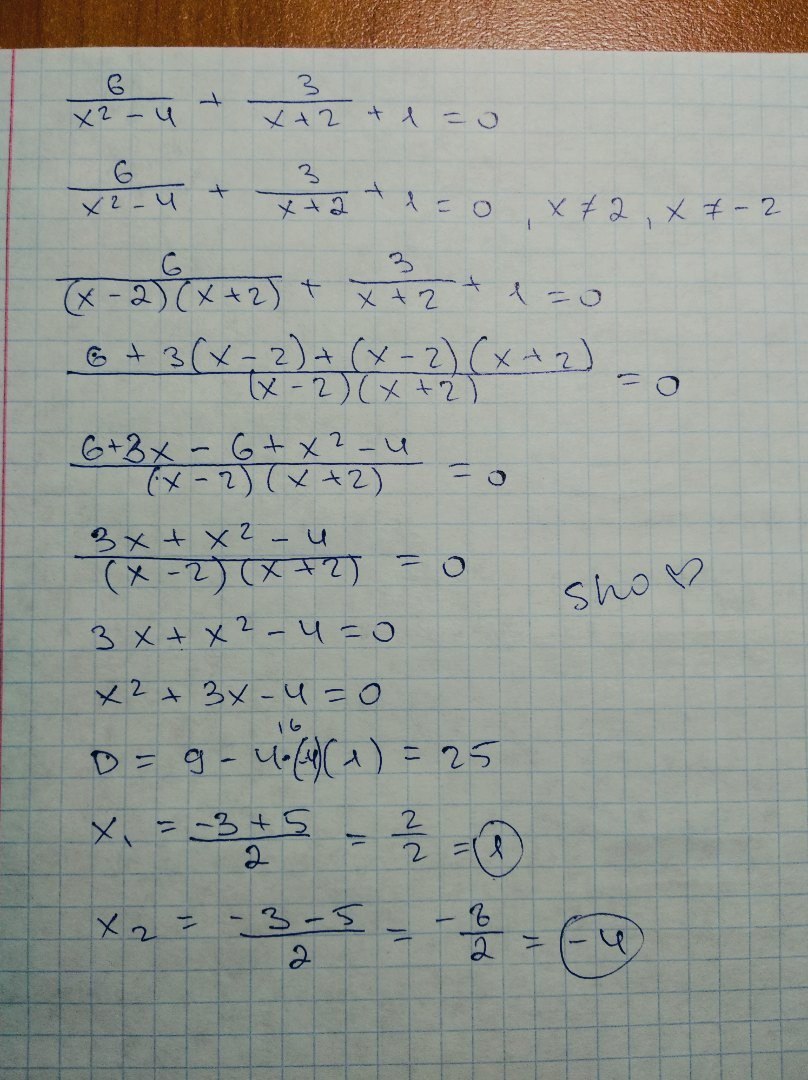 6/(x² - 4) + 3/(x+2) + 1 = 0
6/(x² - 4) + 3/(x+2) + 1 = 0, x ≠ 2, x ≠ -2
6/((x - 2)(x + 2)) + 3/(x + 2) + 1 = 0
(6 + 3(x - 2) + (x - 2)(x + 2))/((x - 2)(x + 2)) = 0
(6+3x - 6 + x² - 4)/((x - 2)(x + 2)) = 0
(3x + x² - 4)/((x - 2)(x + 2)) = 0
sho ♡
3x + x² - 4 = 0
x² + 3x - 4 = 0
16
D = 9 - 4·(-4)(1) = 25
x₁ = (-3 + 5)/2 = 2/2 = 1
x₂ = (-3 - 5)/2 = -8/2 = -4